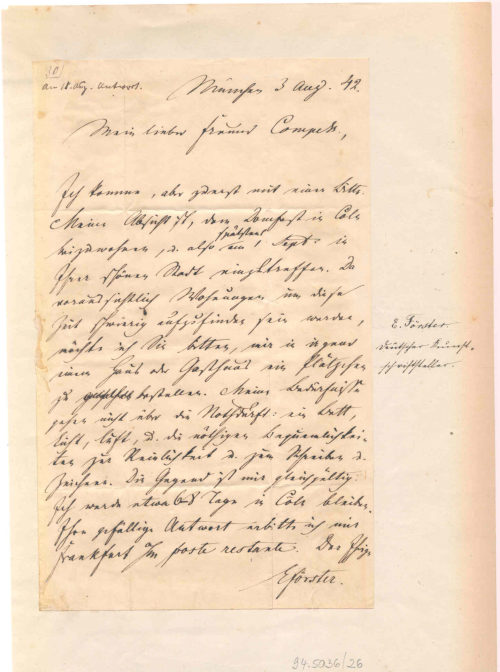 30
am 18. Aug. Antwort.
München 3 Aug. 42.
Mein lieber Freund Compes,
Ich komme, aber zuerst mit einer Bitte.
Meine Absicht ist, dem Domfest in Cöln
beizuwohnen, u. also spätestens am 1 Sept. in
Ihrer schönen Stadt einzutreffen. Da
voraussichtlich Wohnungen um diese
Zeit schwierig aufzufinden sein werden,
möchte ich Sie bitten, mir in irgend
einem Haus oder Gasthaus ein Plätzchen
zu bestellen. Meine Bedürfnisse
gehen nicht über die Nothdurft: ein Bett,
Licht, Luft, u. die nöthigen Bequemlichkei-
ten zur Reinlichkeit u. zum Schreiben u.
Zeichnen. Die Gegend ist mir gleichgültig.
Ich werde etwa 6-8 Tage in Cöln bleiben.
Ihre gefällige Antwort erbitte ich mir
Frankfurt a/m poste restante. Der Ihrige
EFörster.
E. Förster.
deutscher Kunst-
schriftsteller.
94.5036/26